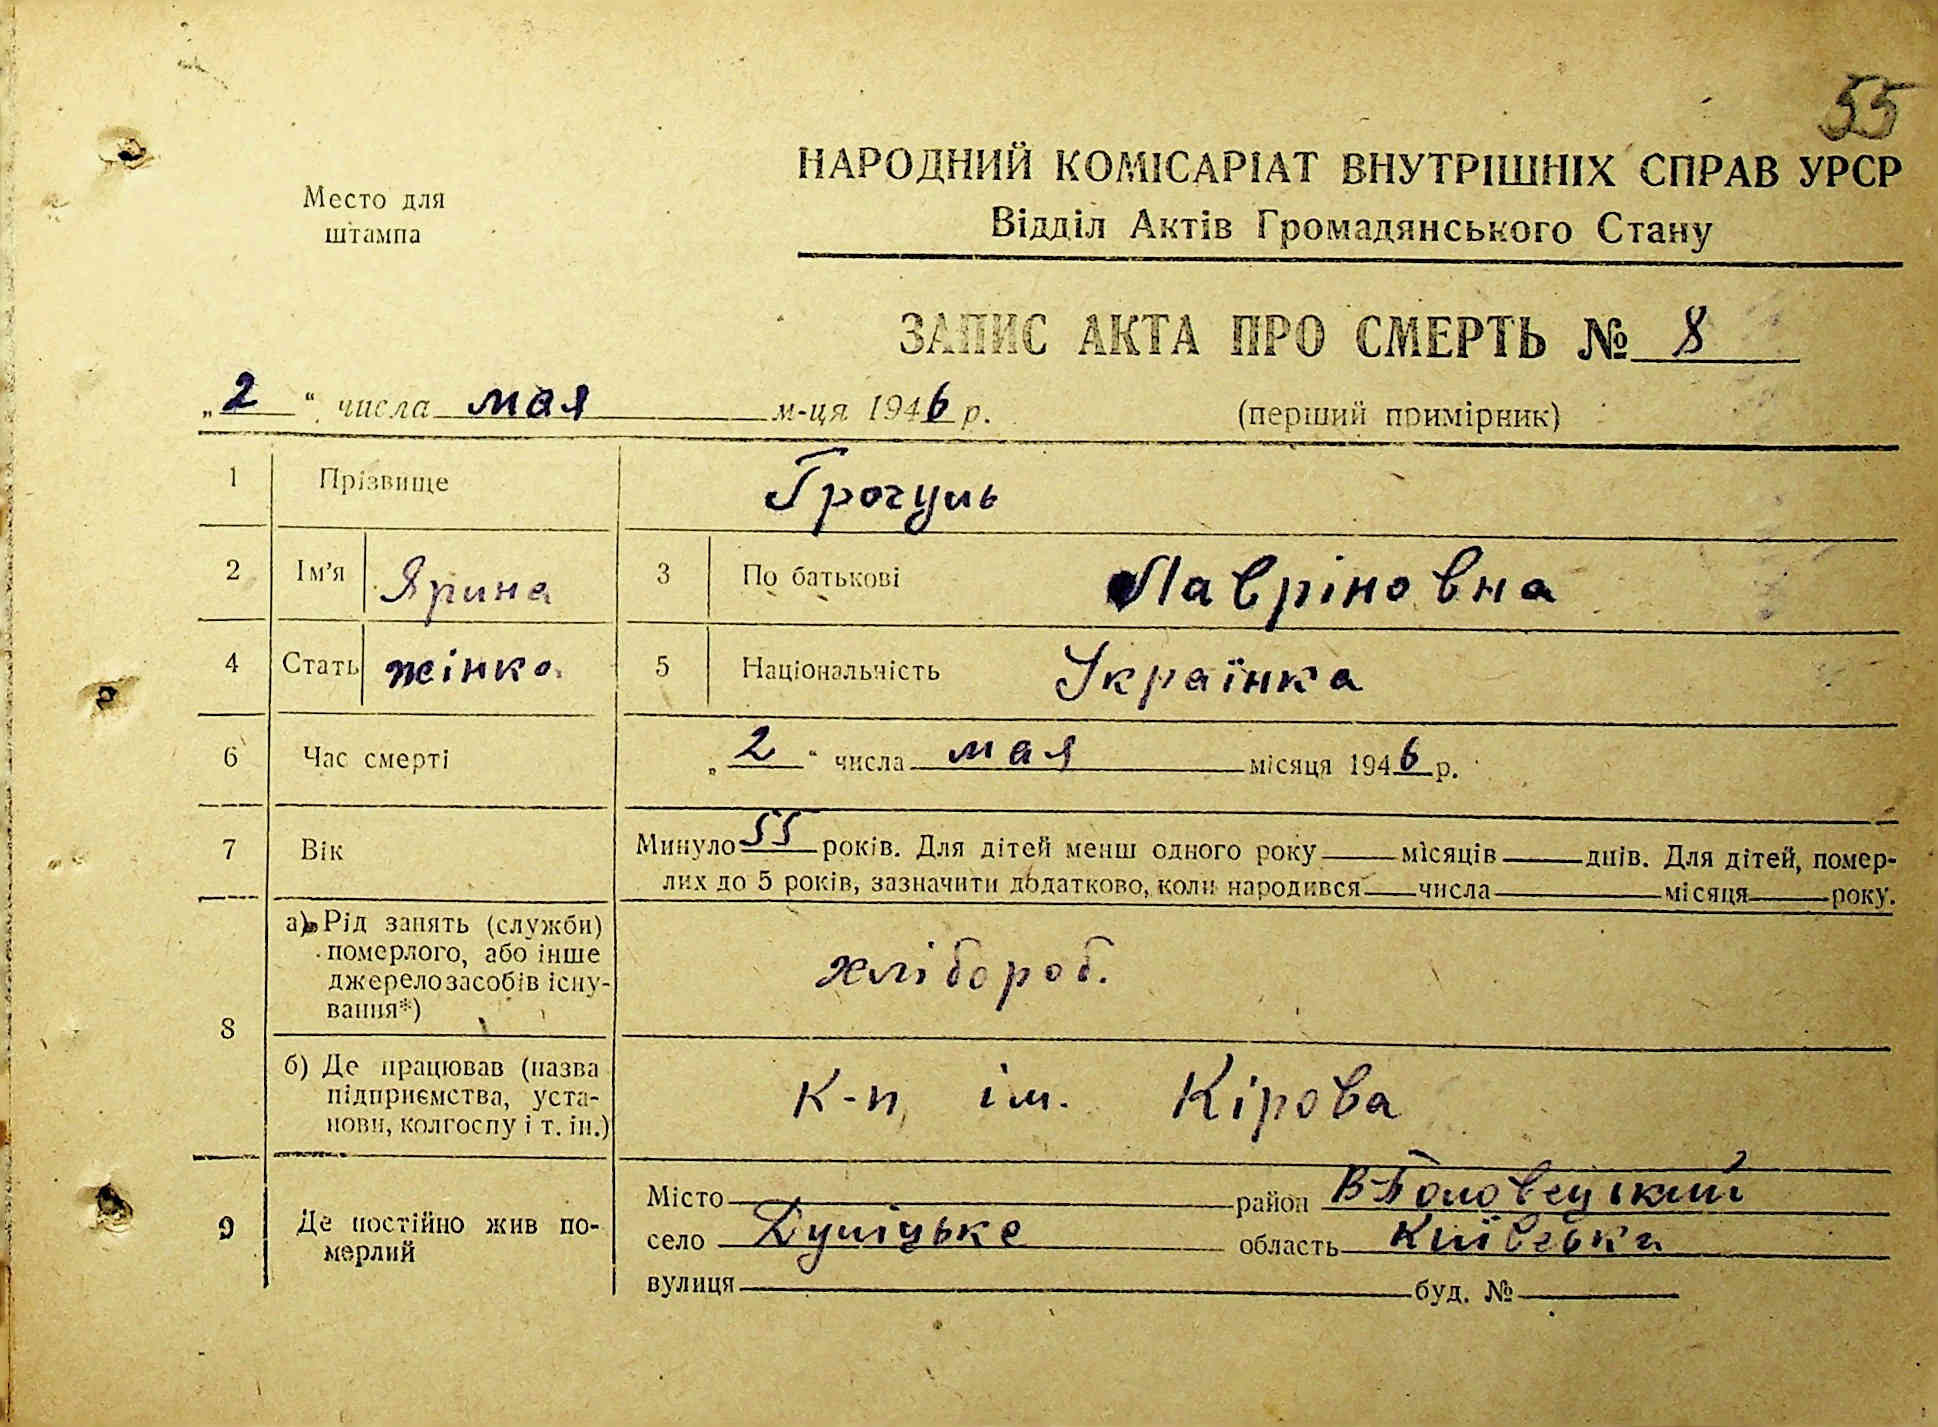 55
НАРОДНИЙ КОМІСАРІАТ ВНУТРІШНІХ СПРАВ УРСР
Место для
штампа
Відділ Актів Громадянського Стану
ЗАПИС АКТА ПРО СМЕРТЬ № 8
„2“ числа мая м-ця 1946 р.
(перший примірник)
1 Прізвище Грогуль
2 Ім’я Ярина 3 По батькові Лавріновна
4 Стать жінка 5 Національність Українка
6 Час смерті „2“ числа мая місяця 1946 р.
7 Вік Минуло 55 років. Для дітей менш одного року місяців днів. Для дітей, помер-
лих до 5 років, зазначити додатково, коли народився числа місяця року.
8 а) Рід занять (служби)
померлого, або інше
джерело засобів існу-
вання*)
хлібороб.
б) Де працював (назва
підприємства, уста-
нови, колгоспу і т. ін.)
К-п ім. Кірова
9 Де постійно жив по-
мерлий
Місто район
село Дуліцьке область Київська
вулиця буд. №